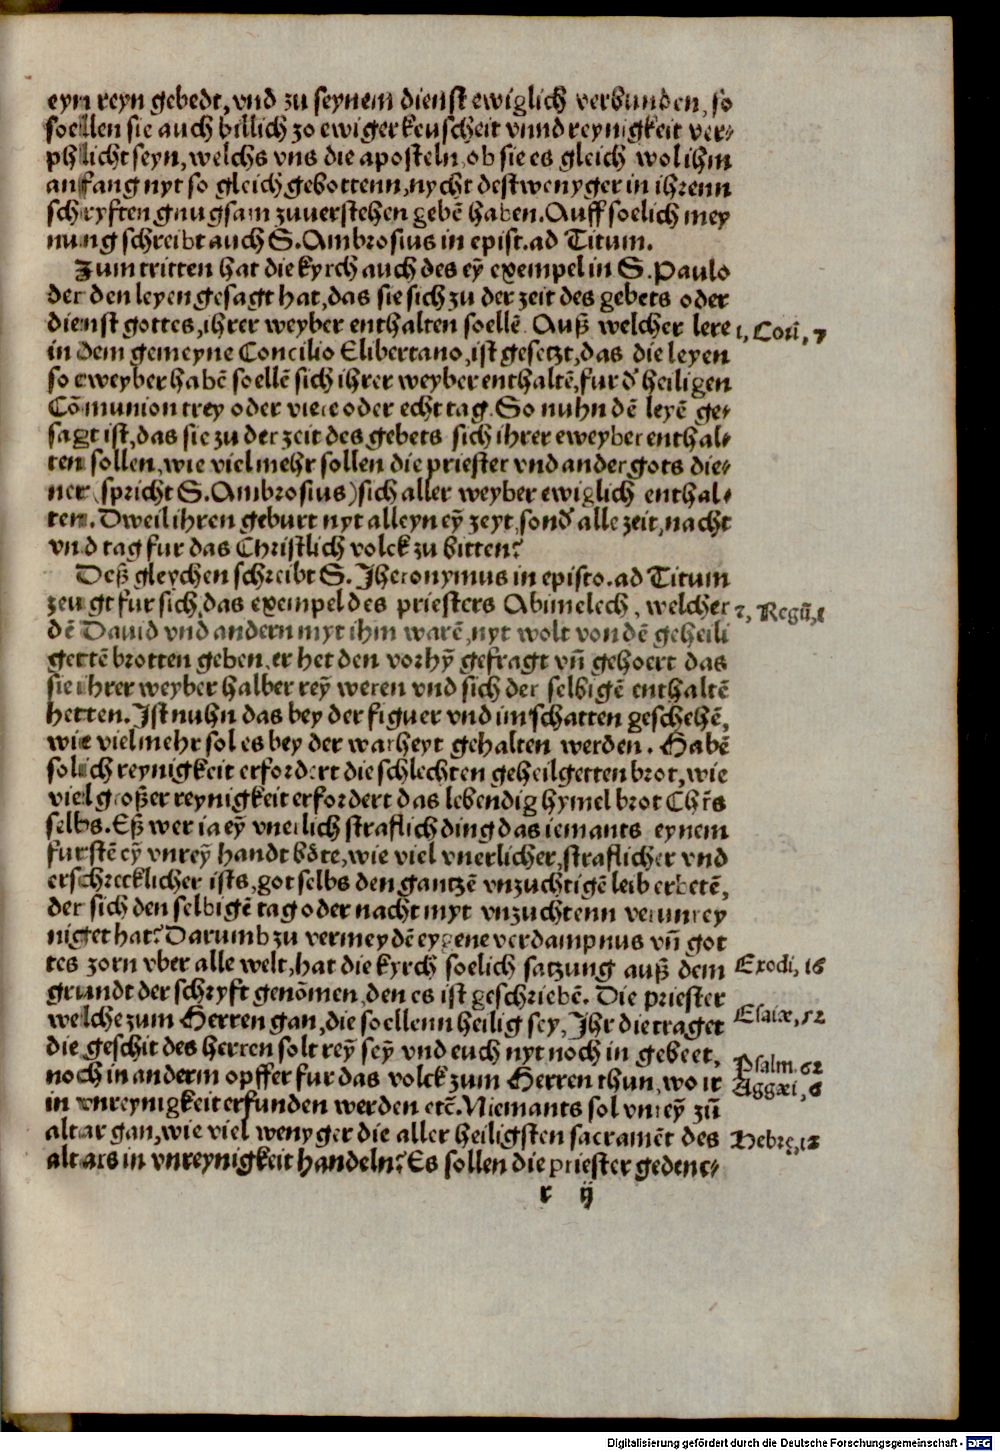 eyn reyn gebedt, vnd zu seynem dienst ewiglich verbunden, so
soellen sie auch billich zo ewiger keuscheit vnnd reynigkeit ver⸗
phlicht seyn, welchs vns die aposteln, ob sie es gleich wol ihm
anfang nyt so gleich gebottenn, nycht destwenyger in ihrenn
schryften gnugsam zuuerstehen gebē haben. Auff soelich mey
nung schreibt auch S. Ambrosius in epist. ad Titum.
Zum tritten hat die kyrch auch des eȳ exempel in S. Paulo
der den leyen gesagt hat, das sie sich zu der zeit des gebets oder
dienst gottes, ihrer weyber enthalten soellē. Auß welcher lere
1, Cori, 7
in dem gemeyne Concilio Elibertano, ist gesetzt, das die leyen
so eweyber habē soellē sich ihrer weyber enthaltē, fur d' heiligen
Cōmunion trey oder viere oder echt tag. So nuhn dē leyē ge⸗
sagt ist, das sie zu der zeit des gebets sich ihrer eweyber enthal⸗
ten sollen, wie viel mehr sollen die priester vnd ander gots die⸗
ner (spricht S. Ambrosius) sich aller weyber ewiglich enthal⸗
ten. Dweil ihren geburt nyt alleyn eȳ zeyt, sond' alle zeit, nacht
vnd tag fur das Christlich volck zu bitten?
Deß gleychen schreibt S. Jheronymus in episto. ad Titum
zeugt fur sich, das exempel des priesters Abimelech, welcher
2, Regū, 1
dē Dauid vnd andern myt ihm warē, nyt wolt von dē geheili
gettē brotten geben, er het den vorhȳ gefragt vn̄ gehoert das
sie ihrer weyber halber reȳ weren vnd sich der selbigē enthaltē
hetten. Ist nuhn das bey der figuer vnd im schatten geschehē,
wie viel mehr sol es bey der warheyt gehalten werden. Habē
solich reynigkeit erfordert die schlechten geheilgetten brot, wie
viel großer reynigkeit erfordert das lebendig hymel brot Chr̄s
selbs. Eß wer ia eȳ vneilich straflich ding das iemants eynem
furstē eȳ vnreȳ handt böte, wie viel vnerlicher, straflicher vnd
erschrecklicher ists, got selbs den gantzē vnzuchtigē leib erbetē,
der sich den selbigē tag oder nacht myt vnzuchtenn verunrey
niget hat? Darumb zu vermeydē eygene verdampnus vn̄ got
tes zorn vber alle welt, hat die kyrch soelich satzung auß dem
Exodi, 16
grundt der schryft genōmen, den es ist geschriebē. Die priester
welche zum Herren gan, die soellenn heilig sey, Ihr die traget
Esaiæ, 52
die geschit des herren solt reȳ seȳ vnd euch nyt noch in gebeet,
noch in anderm opffer fur das volck zum Herren thun, wo ir
Psalm. 62
Aggæi, 6
in vnreynigkeit erfunden werden etē. Niemants sol vnreȳ zū
altar gan, wie viel wenyger die aller heiligsten sacramēt des
Hebre, 12
altars in vnreynigkeit handeln? Es sollen die priester gedenc⸗
r ij
Digitalisierung gefördert durch die Deutsche Forschungsgemeinschaft - DFG